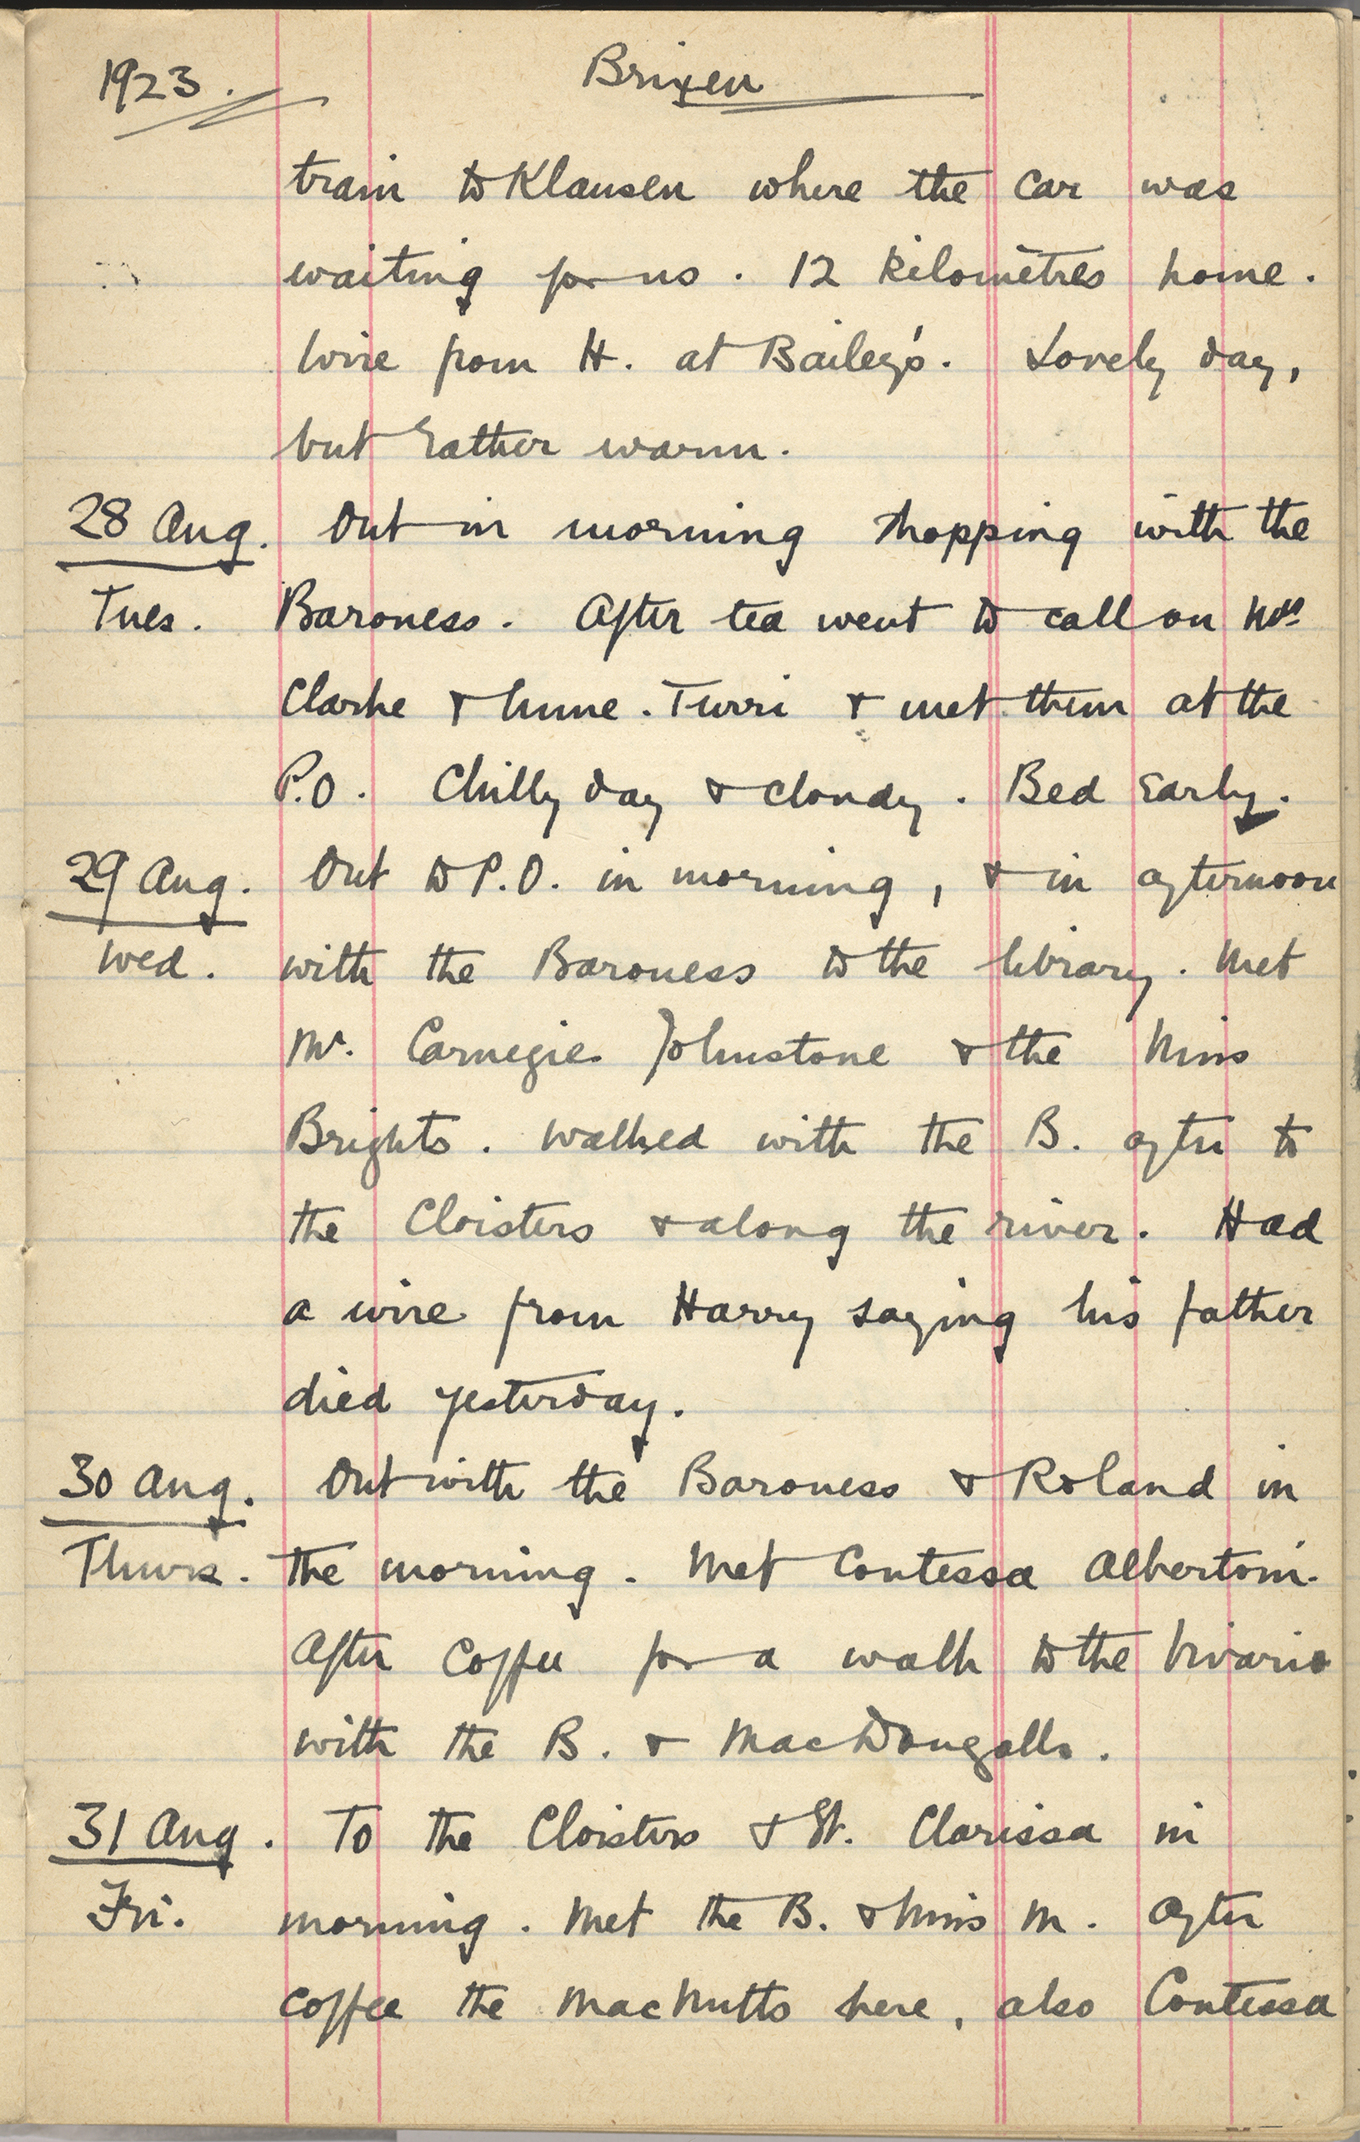 1923. Brixen
train to Klausen where the car was
waiting for us. 12 kilomètres home.
Wire from H. at Bailey's. Lovely day,
but rather warm.
28 Aug. Out in morning shopping with the
Tues. Baroness. After tea went to call on Mrs
Clarke & Mme. Turri & met them at the
P.O. Chilly day & cloudy. Bed early.
29 Aug. Out to P.O. in morning, & in afternoon
Wed. with the Baroness to the library. Met
Mr. Carnegie Johnstone & the Miss
Brights. Walked with the B. after to
the Cloisters & along the river. Had
a wire from Harry saying his father
died yesterday.
30 Aug. Out with the Baroness & Roland in
Thurs. the morning. Met Contessa Albertoni.
After coffee for a walk to the Vivario
with the B. & MacDougalls.
31 Aug. To the Cloisters & St. Clarissa in
Fri. morning. Met the B. & Miss M. After
coffee the MacNutts here, also Contessa